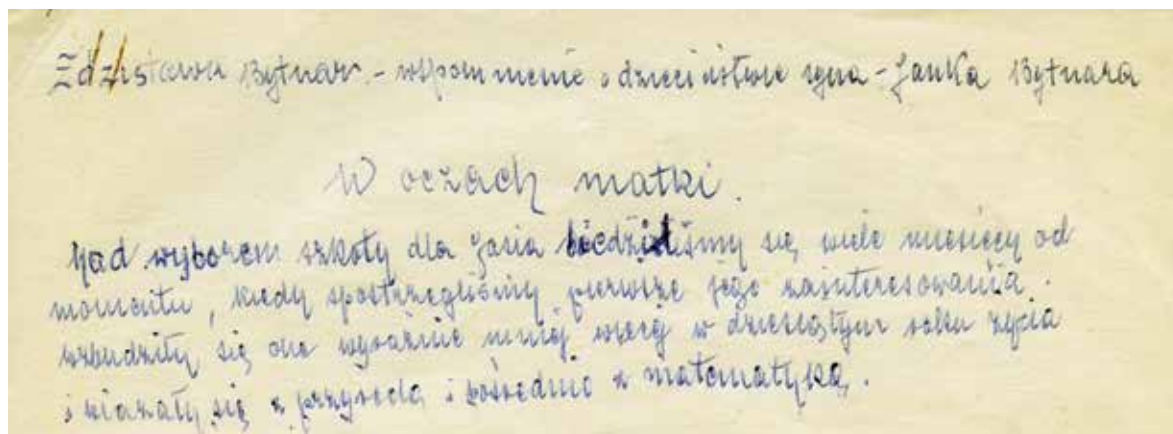 Zdzisława Bytnar - wspomnienie o dzieciństwie syna - Janka Bytnara
W oczach matki.
Nad wyborem szkoły dla Jasia biedziliśmy się wiele miesięcy od
momentu, kiedy spostrzegliśmy pierwsze jego zainteresowania.
wzbudziły się one wyraźnie mniej więcej w dziesiątym roku życia
i wiązały się z przyrodą i pośrednio z matematyką.